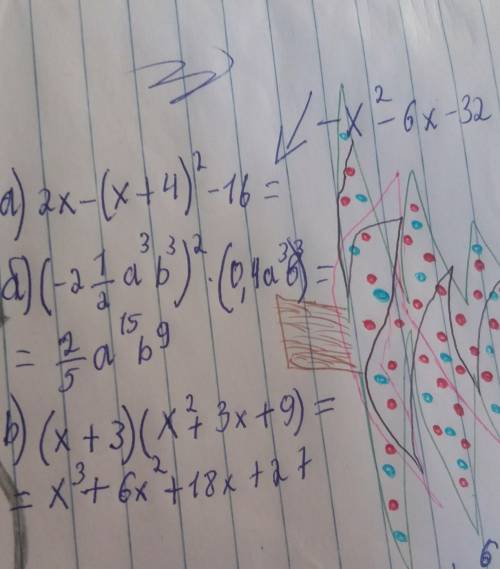 - x² - 6x - 32
а) 2x - (x + 4)² - 16 =
б) (-2 1/2 a³b³)² · (0,4a³b)³ =
= 2/5 a¹⁵b⁹
в) (x + 3)(x² + 3x + 9) =
= x³ + 6x² + 18x + 27
6